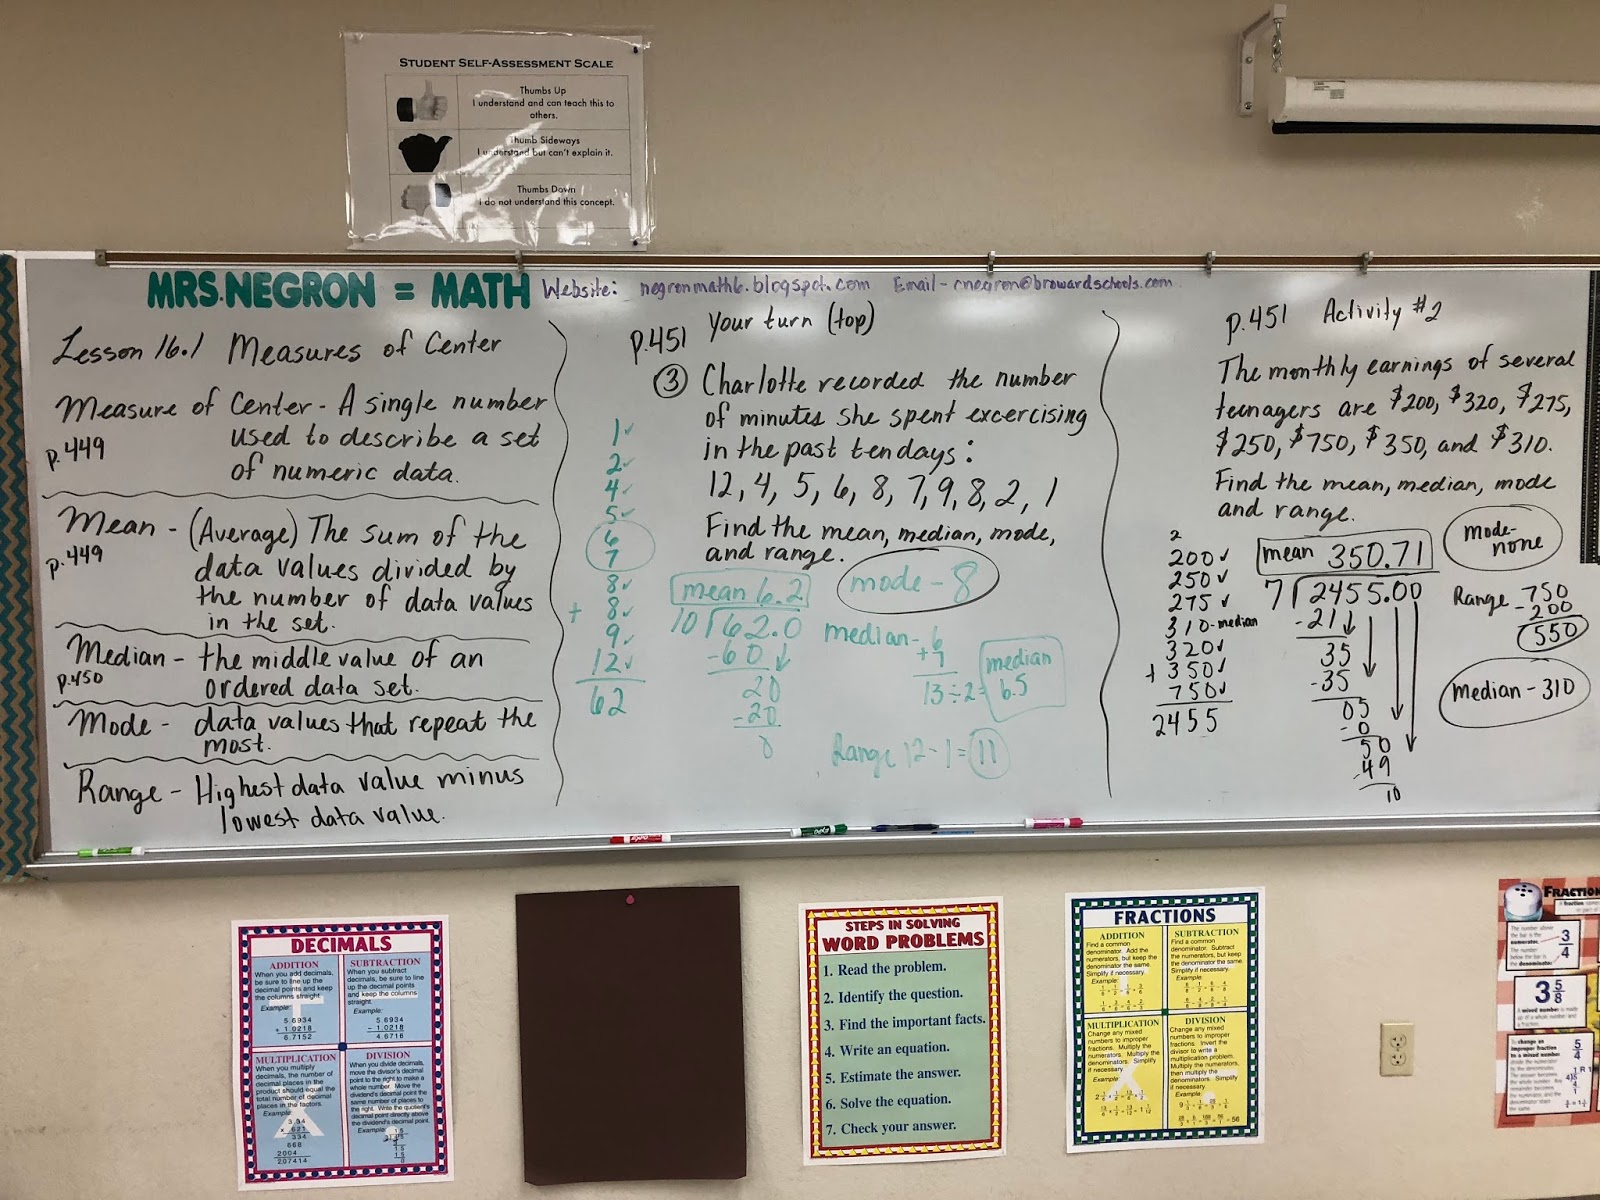 STUDENT SELF-ASSESSMENT SCALE
Thumbs Up
I understand and can teach this to
others.
Thumb Sideways
I understand but can't explain it.
Thumbs Down
I do not understand this concept.
MRS. NEGRON = MATH
Website: negronmath6.blogspot.com Email - rnegron@browardschools.com
Lesson 16.1 Measures of Center
Measure of Center - A single number
p.449 used to describe a set
of numeric data.
Mean - (Average) The sum of the
p.449 data values divided by
the number of data values
in the set.
Median - the middle value of an
p.450 ordered data set.
Mode - data values that repeat the
most.
Range - Highest data value minus
lowest data value.
p.451 Your turn (top)
③ Charlotte recorded the number
of minutes she spent excercising
in the past ten days:
12, 4, 5, 6, 8, 7, 9, 8, 2, 1
Find the mean, median, mode,
and range.
1✓
2✓
4✓
5✓
6
7
8✓
+ 8✓
9✓
12✓
62
mean 6.2
10 62.0
-60
20
-20
0
mode - 8
median - 6
+7
13 ÷ 2 =
median
6.5
Range 12 - 1 = 11
p.451 Activity #2
The monthly earnings of several
teenagers are $200, $320, $275,
$250, $750, $350, and $310.
Find the mean, median, mode
and range.
2
200✓
250✓
275✓
310 - median
320✓
+ 350✓
750✓
2455
mean 350.71
7 2455.00
-21
35
-35
05
-0
50
-49
10
mode-
none
Range 750
-200
550
median - 310
DECIMALS
ADDITION
When you add decimals,
be sure to line up the
decimal points and keep
the columns straight.
Example:
5.6934
+ 1.0218
6.7152
SUBTRACTION
When you subtract
decimals, be sure to line
up the decimal points
and keep the columns
straight.
Example:
5.6934
- 1.0218
4.6716
MULTIPLICATION
When you multiply
decimals, the number of
decimal places in the
product should equal the
total number of decimal
places in the factors.
Example:
3.34
x .621
334
668
2004
2.07414
DIVISION
When you divide decimals,
move the divisor's decimal
point to the right to make a
whole number. Move the
dividend's decimal point the
same number of places to
the right. Write the quotient's
decimal point directly above
the dividend's decimal point.
Example:
STEPS IN SOLVING
WORD PROBLEMS
1. Read the problem.
2. Identify the question.
3. Find the important facts.
4. Write an equation.
5. Estimate the answer.
6. Solve the equation.
7. Check your answer.
FRACTIONS
ADDITION
Find a common
denominator. Add the
numerators, but keep
the denominator the same.
Simplify if necessary.
Example:
SUBTRACTION
Find a common
denominator. Subtract
the numerators, but keep
the denominator the same.
Simplify if necessary.
Example:
MULTIPLICATION
Change any mixed
numbers to improper
fractions. Multiply the
numerators. Multiply the
denominators. Simplify
if necessary.
Example:
DIVISION
Change any mixed
numbers to improper
fractions. Invert the
divisor to write a
multiplication problem.
Multiply the numerators,
then multiply the
denominators. Simplify
if necessary.
Example:
FRACTION
The number above
the bar is the
numerator.
The number
below the bar is
the denominator.
3/4
3 5/8
A mixed number is
5/4